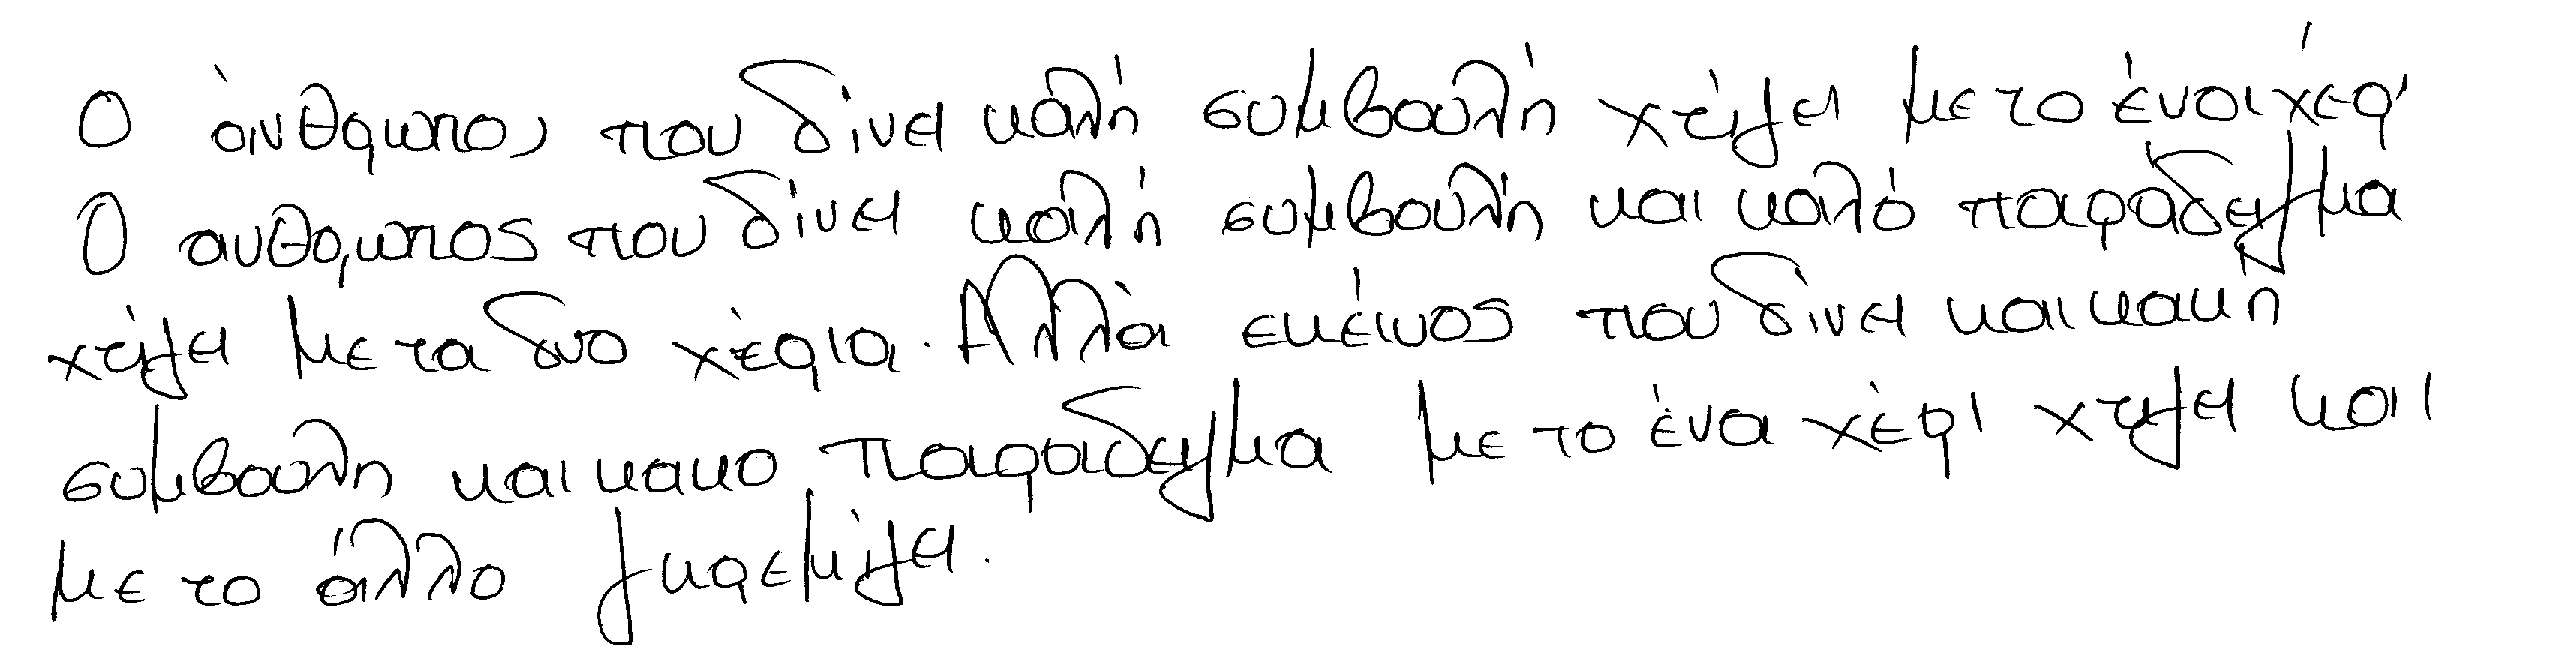 Ο άνθρωπος που δίνει καλή συμβουλή χτίζει με το ένα χέρι
Ο ανθρωπος που δίνει καλή συμβουλή και καλό παράδειγμα
χτίζει με τα δυο χέρια. Αλλά εκείνος που δίνει και κακη
συμβουλη και κακο παραδειγμα με το ένα χέρι χτιζει και
με το άλλο γκρεμίζει.